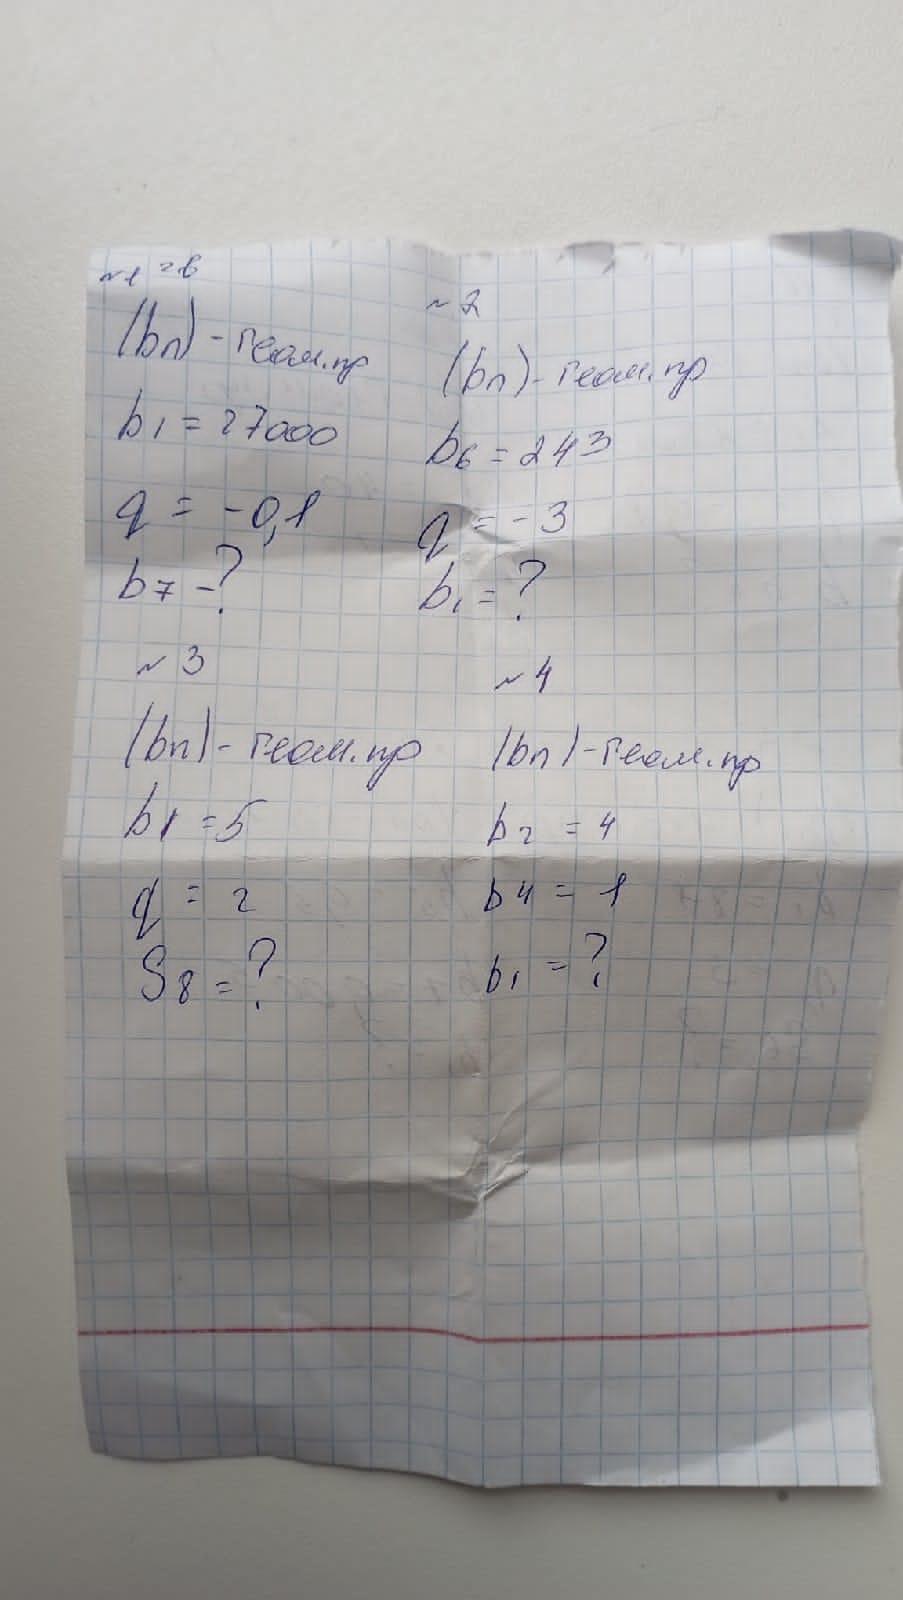 (bn) - геом.пр
b1 = 27000
q = -0,1
b7 - ?
~2
(bn) - геом.пр
b6 = 243
q = -3
b1 = ?
~3
(bn) - геом.пр
b1 = 5
q = 2
S8 = ?
~4
(bn) - геом.пр
b2 = 4
b4 = 1
b1 = ?